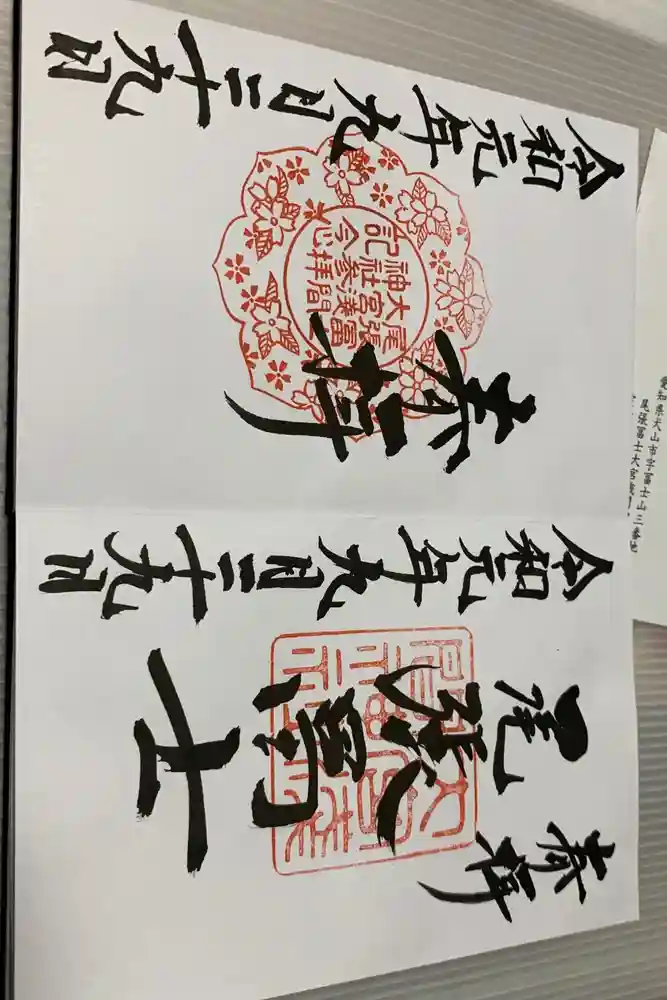 奉拝
尾張冨士
令和元年九月二十九日
奉拝
尾張冨士
大宮浅間
神社参拝
記念
令和元年九月二十九日
愛知県犬山市字冨士山三番地
尾張冨士大宮浅間